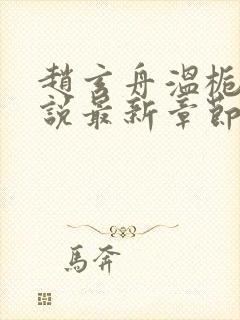 趙玄舟溫梔
說最新章節
馬奔